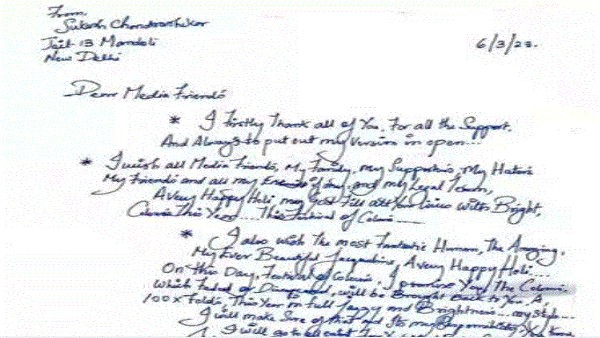 From,
Sukash Chandrashekar
Jail-13 Mandoli
New Delhi
6/3/23.
Dear Media Friends
* I Firstly Thank all of You, For all the Support,
And Always to put out my Version in open...
* I wish all Media Friends, My Family, my Supporters, My Haters
My Friends and all my Enemies if any, and my Legal Team,
A Very Happy Holi, may God Fill all your Lives With Bright,
Colours This Year.... This Festival of Colours
* I also wish The most Fantastic Human, The Amazing,
My Ever Beautiful Jacqueline, A very Happy Holi....
On this Day, Festival of Colours, I promise You, The Colours
Which Faded or Disappeared, will be Brought Back to You, A,
100X Folds, This Year in Full Jazzy and Brightness... my style...
I will make Sure of that and Its my Responsibility, You Know
I will go to